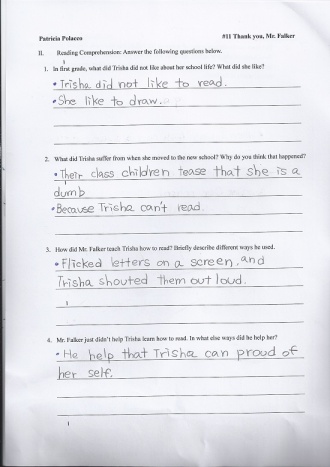 Patricia Polacco #11 Thank you, Mr. Falker
II. Reading Comprehension: Answer the following questions below.
1. In first grade, what did Trisha did not like about her school life? What did she like?
• Trisha did not like to read.
• She like to draw.
2. What did Trisha suffer from when she moved to the new school? Why do you think that happened?
• Their class children tease that she is a
dumb
• Because Trisha can't read.
3. How did Mr. Falker teach Trisha how to read? Briefly describe different ways he used.
• Flicked letters on a screen, and
Trisha shouted them out loud.
4. Mr. Falker just didn't help Trisha learn how to read. In what else ways did he help her?
• He help that Trisha can proud of
her self.